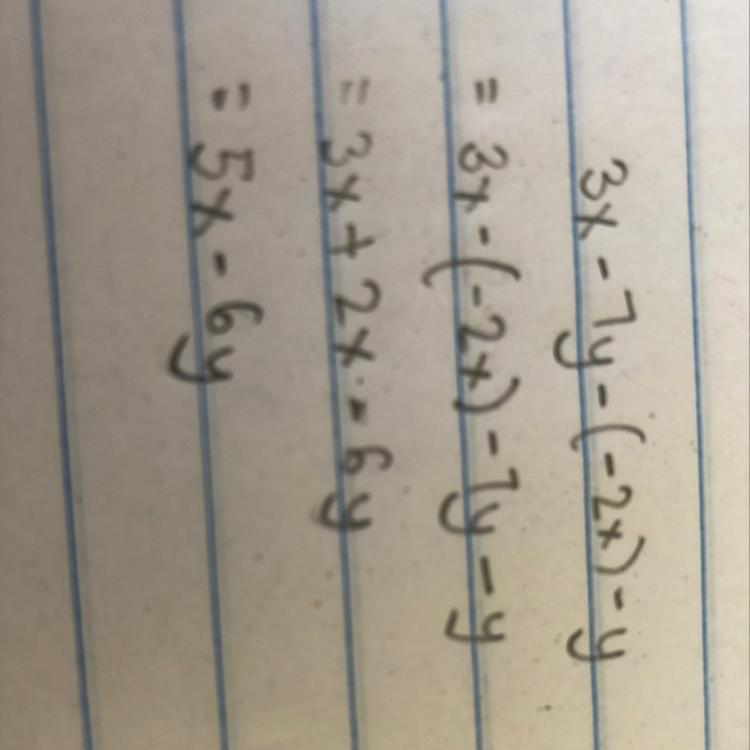 3x - 7y - (-2x) - y
= 3x - (-2x) - 7y - y
= 3x + 2x - 6y
= 5x - 6y